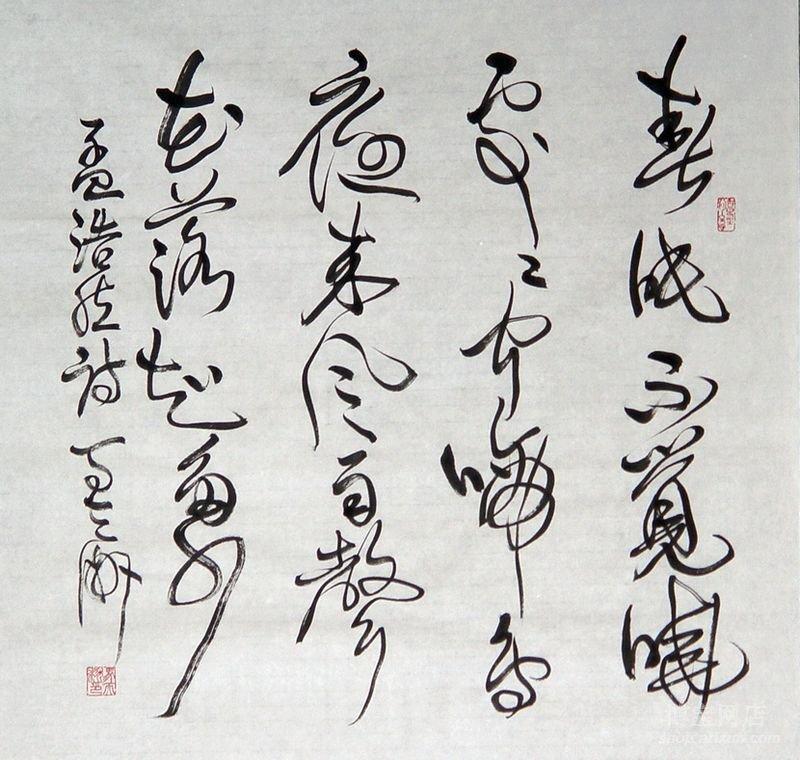 春眠不覺曉
處々聞啼鳥
夜来風雨聲
花落知多少
孟浩然詩